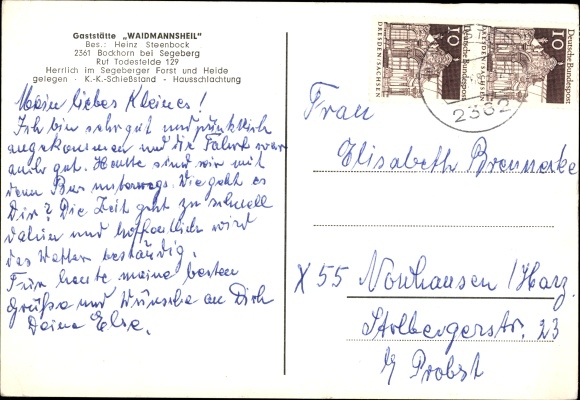 Gaststätte „WAIDMANNSHEIL"
Bes.: Heinz Steenbock
2361 Bockhorn bei Segeberg
Ruf Todesfelde 129
Herrlich im Segeberger Forst und Heide
gelegen · K.-K.-Schießstand · Hausschlachtung
Mein liebes Kleines!
Ich bin sehr gut und pünktlich
angekommen und die Fahrt war
auch gut. Heute sind wir mit
dem Bus unterwegs. Wie geht es
Dir? Die Zeit geht zu schnell
dahin und hoffentlich wird
das Wetter beständig.
Für heute meine besten
Grüße und Wünsche an Dich
Deine Else.
10
Deutsche Bundespost
DRESDEN/SACHSEN
10
Deutsche Bundespost
DRESDEN/SACHSEN
2362
Frau
Elisabeth Brenneke
X 55 Nordhausen/Harz
Stolbergerstr. 23
b/ Probst